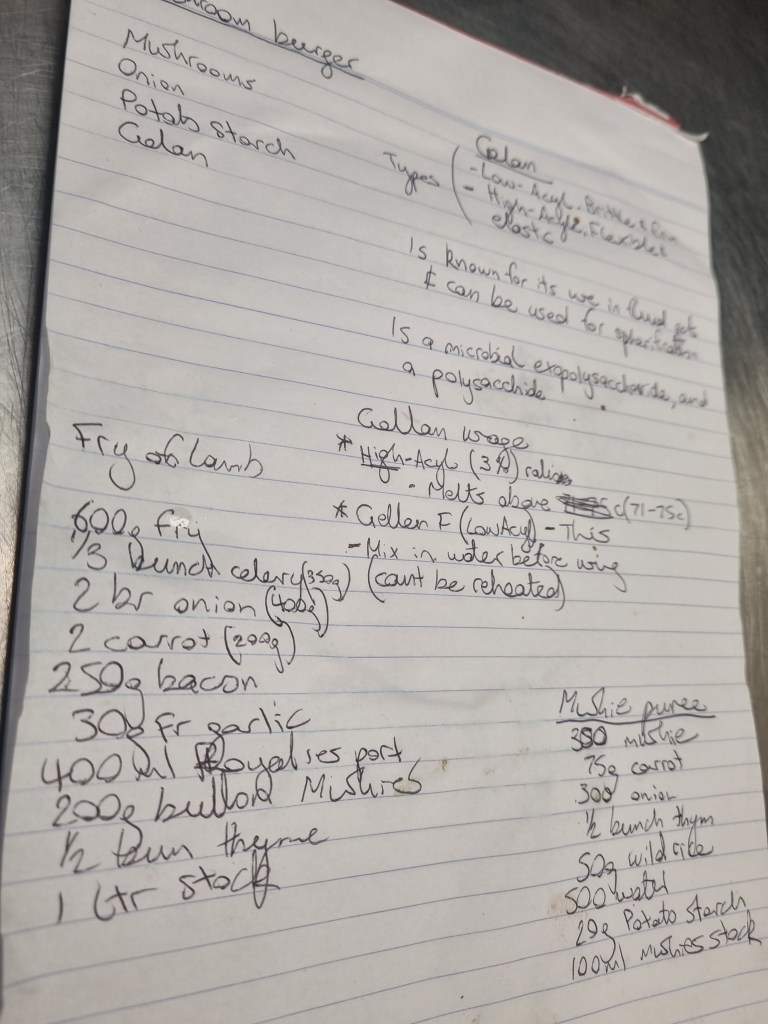 room burger
Mushrooms
Onion
Potato Starch
Gelan
Gelan
Types
- Low-Acyl. Brittle & Firm
- High-Acyl, Flexible &
elastc
Is known for its use in fluid gels
& can be used for spherification
Is a microbial exopolysaccharide, and
a polysacchide.
Gellan usage
* High-Acyl (3%) ratio
- Melts above c(71-75c)
* Gellen F (Low Acyl) - This
- Mix in water before using
(can't be reheated)
Fry of lamb
600g fry
1/3 bunch celery (350g)
2 br onion (400g)
2 carrot (200g)
250g bacon
30g Fr garlic
400ml port
200g button Mushies
1/2 bun thyme
1 Ltr stock
Mushie puree
350 mushie
75g carrot
300 onion
1/2 bunch thym
50g wild rice
500 water
29g Potato Starch
100ml Mushies stock